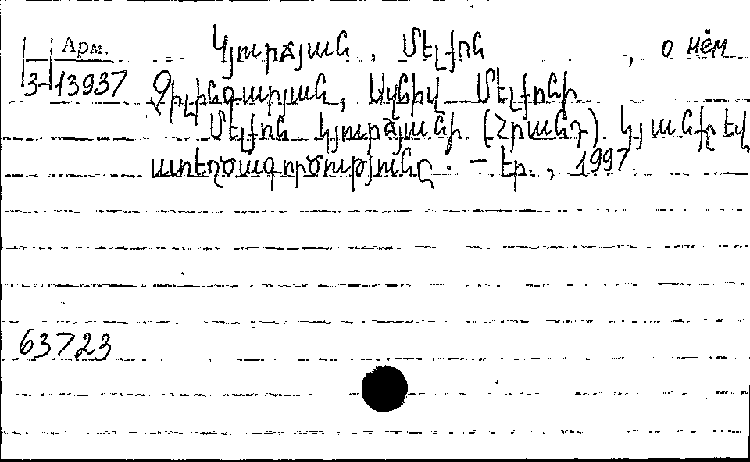 Арм.
3-13937
Կյուրճյան, Մելքոն, о нём
Չիլինգարյան, Ակնիվ Մելքոնի
Մելքոն Կյուրճյանի (Հրանդ) կյանքը եվ
ստեղծագործությունը. – Եր., 1997
63723